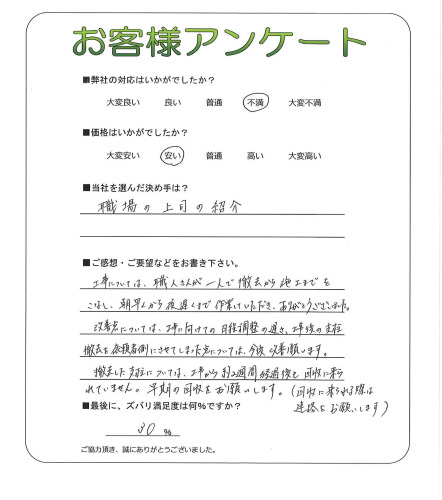 お客様アンケート
■弊社の対応はいかがでしたか?
大変良い 良い 普通 不満 大変不満
■価格はいかがでしたか?
大変安い 安い 普通 高い 大変高い
■当社を選んだ決め手は?
職場の上司の紹介
■ご感想・ご要望などをお書き下さい。
工事については、職人さんが一人で撤去から施工までを
こなし、朝早くから夜遅くまで作業していただき、ありがとうございました。
改善点については、工事に向けての日程調整の遅さ、工事後の支柱
撤去を依頼者側にさせてしまった点については、今後改善願います。
撤去した支柱については、工事から約2週間経過後も回収に来ら
れていません。早期の回収をお願いします。(回収に来られる際は
連絡をお願いします)
■最後に、ズバリ満足度は何%ですか?
30 %
ご協力頂き、誠にありがとうございました。